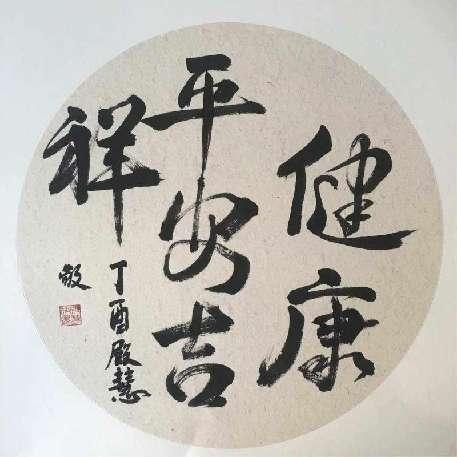 健康
平安吉
祥
丁酉殷慧
敏